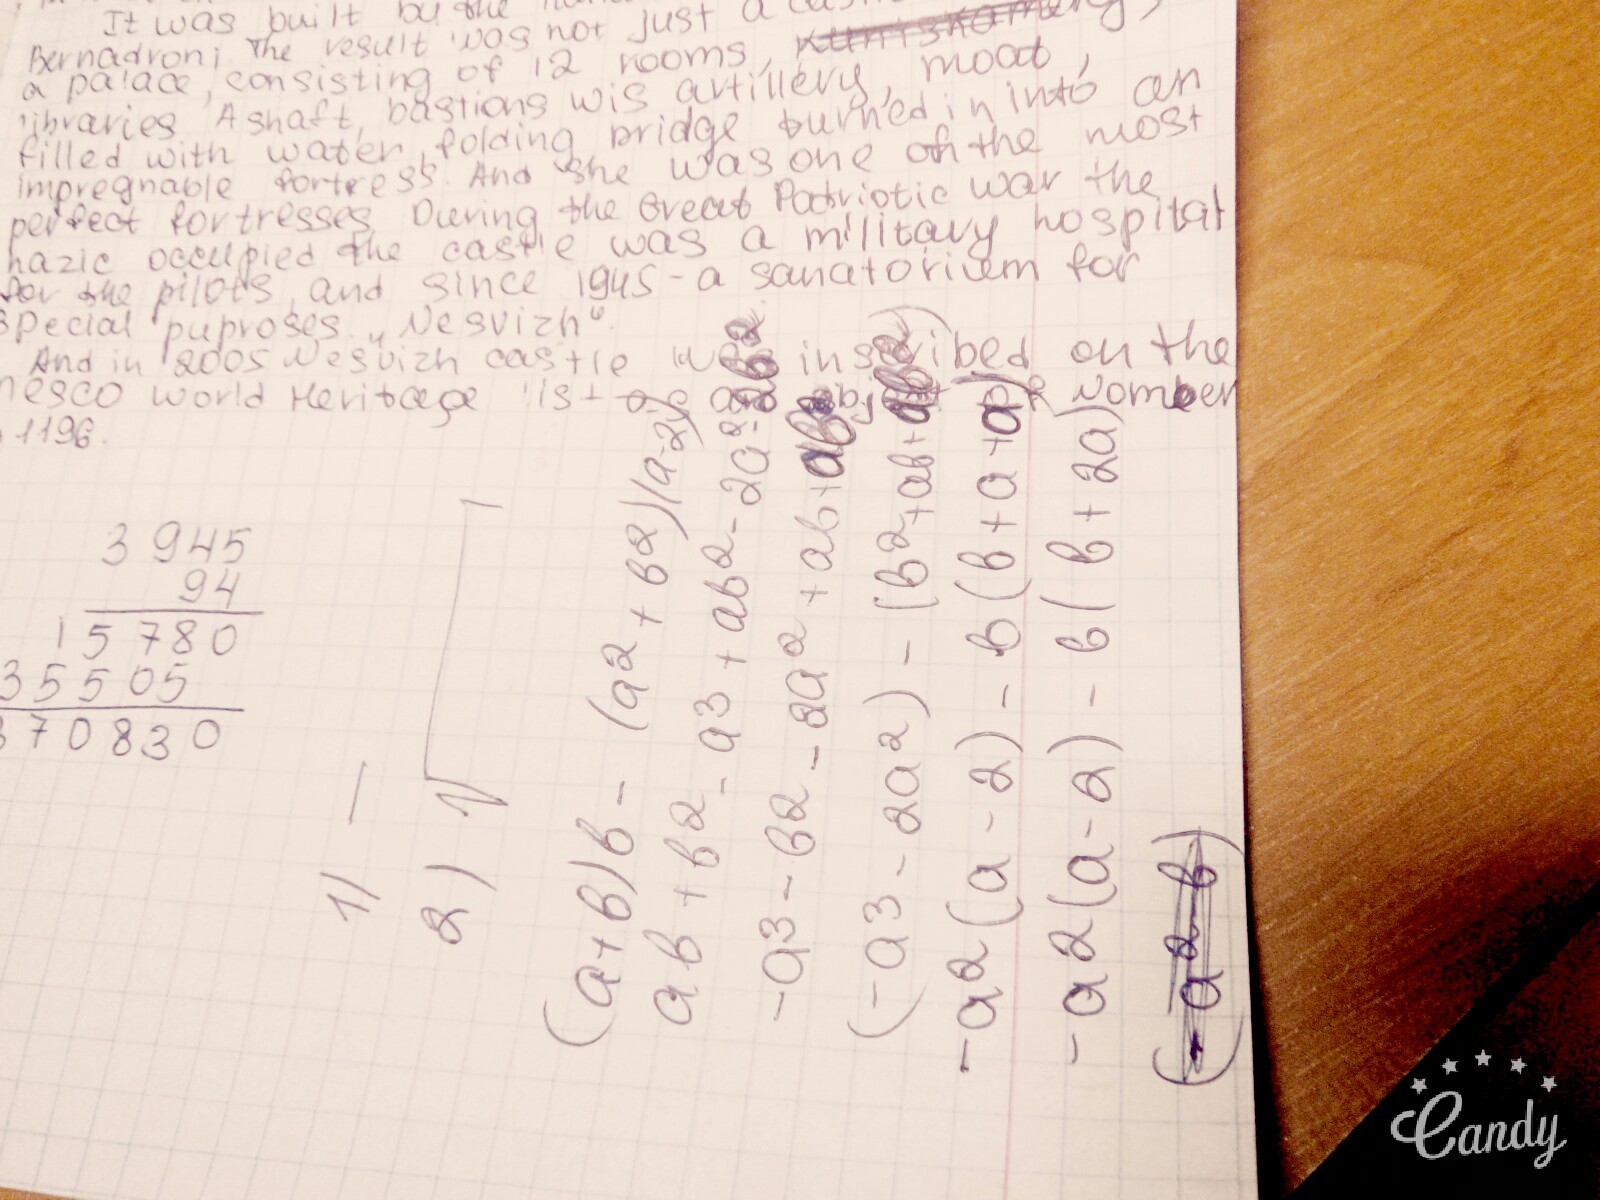 It was built by the
Bernadroni. The result was not just a
a palace, consisting of 12 rooms,
libraries. A shaft, bastions wis artillery, moat,
filled with water, folding bridge turned in into an
impregnable fortress. And she was one of the most
perfect fortresses. During the Great Patriotic war the
nazic occupied the castle was a military hospital
for the pilots, and since 1945 - a sanatorium for
special puproses „Nesvizh“.
And in 2005 Nesvizh castle inscribed on the
nesco World Heritage list Nomber
1196.
3 945
94
15 780
35505
370830
1) —
2) 1
(a+b)b - (a2 + b2)(a-2)
ab + b2 - a3 + ab2 - 2a2
-a3 - b2 - 2a2 + ab +
(-a3 - 2a2) - (b2 + ab +
-a2(a-2) - b(b + a + a)
-a2(a-2) - b(b + 2a)
Candy